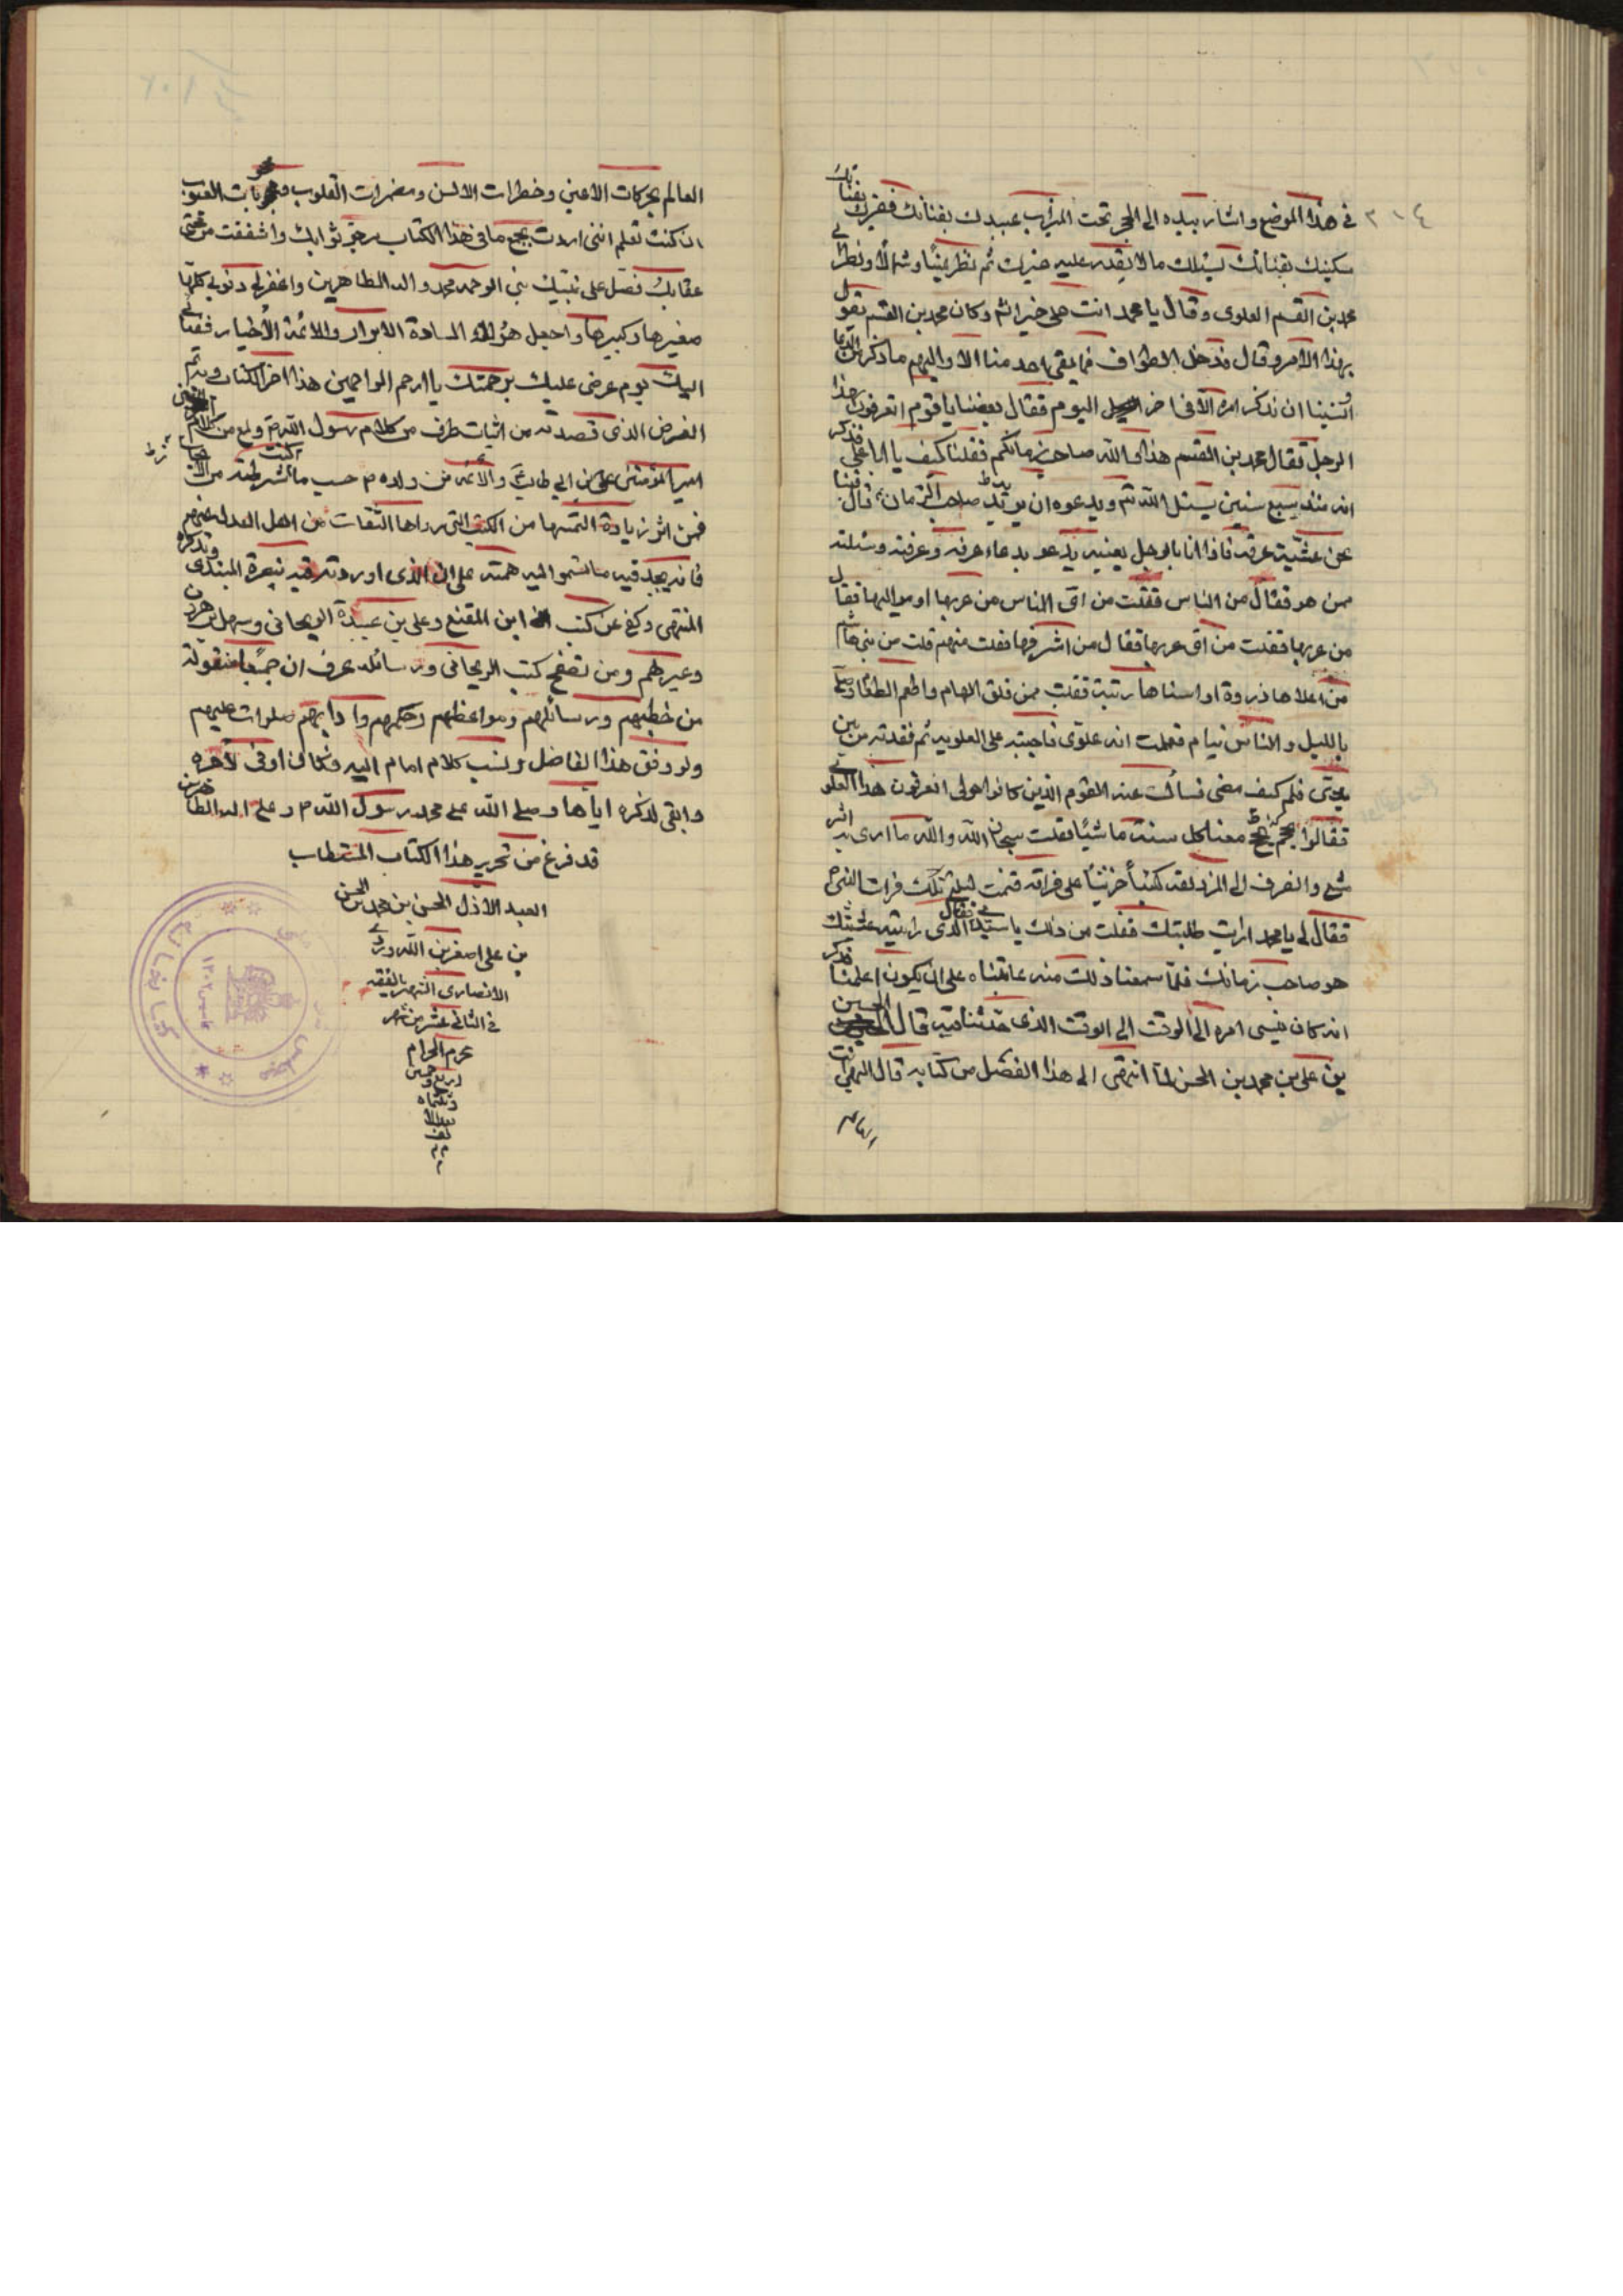 في هذا الموضع واشار بيده الى الحجر تحت الميزاب عبيدك بفنائك فقيرك بفنائك
مسكينك بفنائك يسئلك ما لا يقدر عليه غيرك ثم نظر يمينًا وشمالًا ونظر الى
محمد بن القسم العلوي وقال يا محمد انت على خير انش وكان محمد بن القسم يقول
بهذا الامر وقال فدخل الطواف فما بقى احد منا الا والهم ما ذكر من الدعا
وانسينا ان نذكر امره الا في اخر اليوم فقال بعضنا يا قوم اتعرفون هذا
الرجل فقال محمد بن القسم هذا والله صاحب زمانكم فقلنا كيف يا ابا علي فذكر
انه منذ سبع سنين يسئل الله تم ويدعوه ان يريه صاحب الزمان قال فبينا
نحن عشية عرفه فاذا انا بالرجل بعينه يدعو بدعاء عرفه وعرفته وسئلته
ممن هو فقال من الناس فقلت من اى الناس من عربها او مواليها فقال
من عربها فقلت من اى عربها فقال من اشرفها فقلت منهم قلت من بني هاشم
من اعلاها ذروة او اسناها رتبة فقلت ممن فلق الهام واطعم الطعام وصلى
بالليل والناس نيام فعلمت انه علوى فاحببته على العلويه ثم فقدته من بين
يدى فلم كيف مضى فسألت عنه القوم الذين كانوا حولى اتعرفون هذا العلوى
فقالوا يحج معنا كل سنة ماشيًا فقلت سبحان الله والله ما ارى به اثر
مشي وانصرف الى المزدلفه كئيبًا حزينًا على فراقه فنمت ليلتي تلك فرايت النبى ص
فقال لي يا محمد ارايت طلبتك فقلت من ذلك يا سيدي فقال الذى رايته عشيتك
هو صاحب زمانك فلما سمعنا ذلك منه عاتبناه على ان يكون اعلمنا فذكر
انه كان ينسى امره الى الوقت الى الوقت الذى حدثنا فيه قال الحسين
بن على بن محمد بن الحسن لما انتهى الى هذا الفصل من كتابه قال اللهم انت
العالم بحركات الاعين وخطرات الالسن ومضمرات القلوب ومحجوبات الغيوب
ان كنت تعلم اننى اردت بجمع ما في هذا الكتاب رجو ثوابك واشفقت من خشى
عقابك فصل على نبيك نبي الرحمه محمد واله الطاهرين واغفر لي ذنوبي كلها
صغيرها وكبيرها واجعل هؤلاء السادة الابرار والائمة الاخيار شفعائى
اليك يوم عرضى عليك برحمتك يا ارحم الراحمين هذا اخر الكتاب وبه تم
الغرض الذى قصدته من اثبات طرف من كلام رسول الله ص ولمع من كلام
امير المؤمنين على بن ابى طالب ع والائمه من ولده م حسب ما اشرطته من
فمن اثر زيادة التمسها من الكتب التى رواها الثقات من اهل العدل عنهم
فانه يجد فيه ما تسموا اليه همته على ان الذى اوردته فيه تبصرة المبتدى وتذكرة
المنتهى وكفى عن كتب ابن المقفع وعلى بن عبيدة الريحانى وسهل بن هرون
وغيرهم ومن تصفح كتب الريحانى ورسائله عرف ان جميعها منقولة
من خطبهم ورسائلهم ومواعظهم وحكمهم وادابهم صلوات عليهم
ولو وفق هذا الفاضل ونسب كلام امام اليه فكان اوفى لاجره
وابقى لذكره اياها وصلى الله على محمد رسول الله ص وعلى اله الطاهرين
قد فرغ من تحرير هذا الكتاب المستطاب
العبد الاذل الحسن بن محمد بن الحسن
بن على اصغر بن الله وردي
الانصارى الشهير بالفقيه
في الثانى عشر من شهر
محرم الحرام
اربع وخمس
وثلثماه
بعد الا
لف
٣١٤